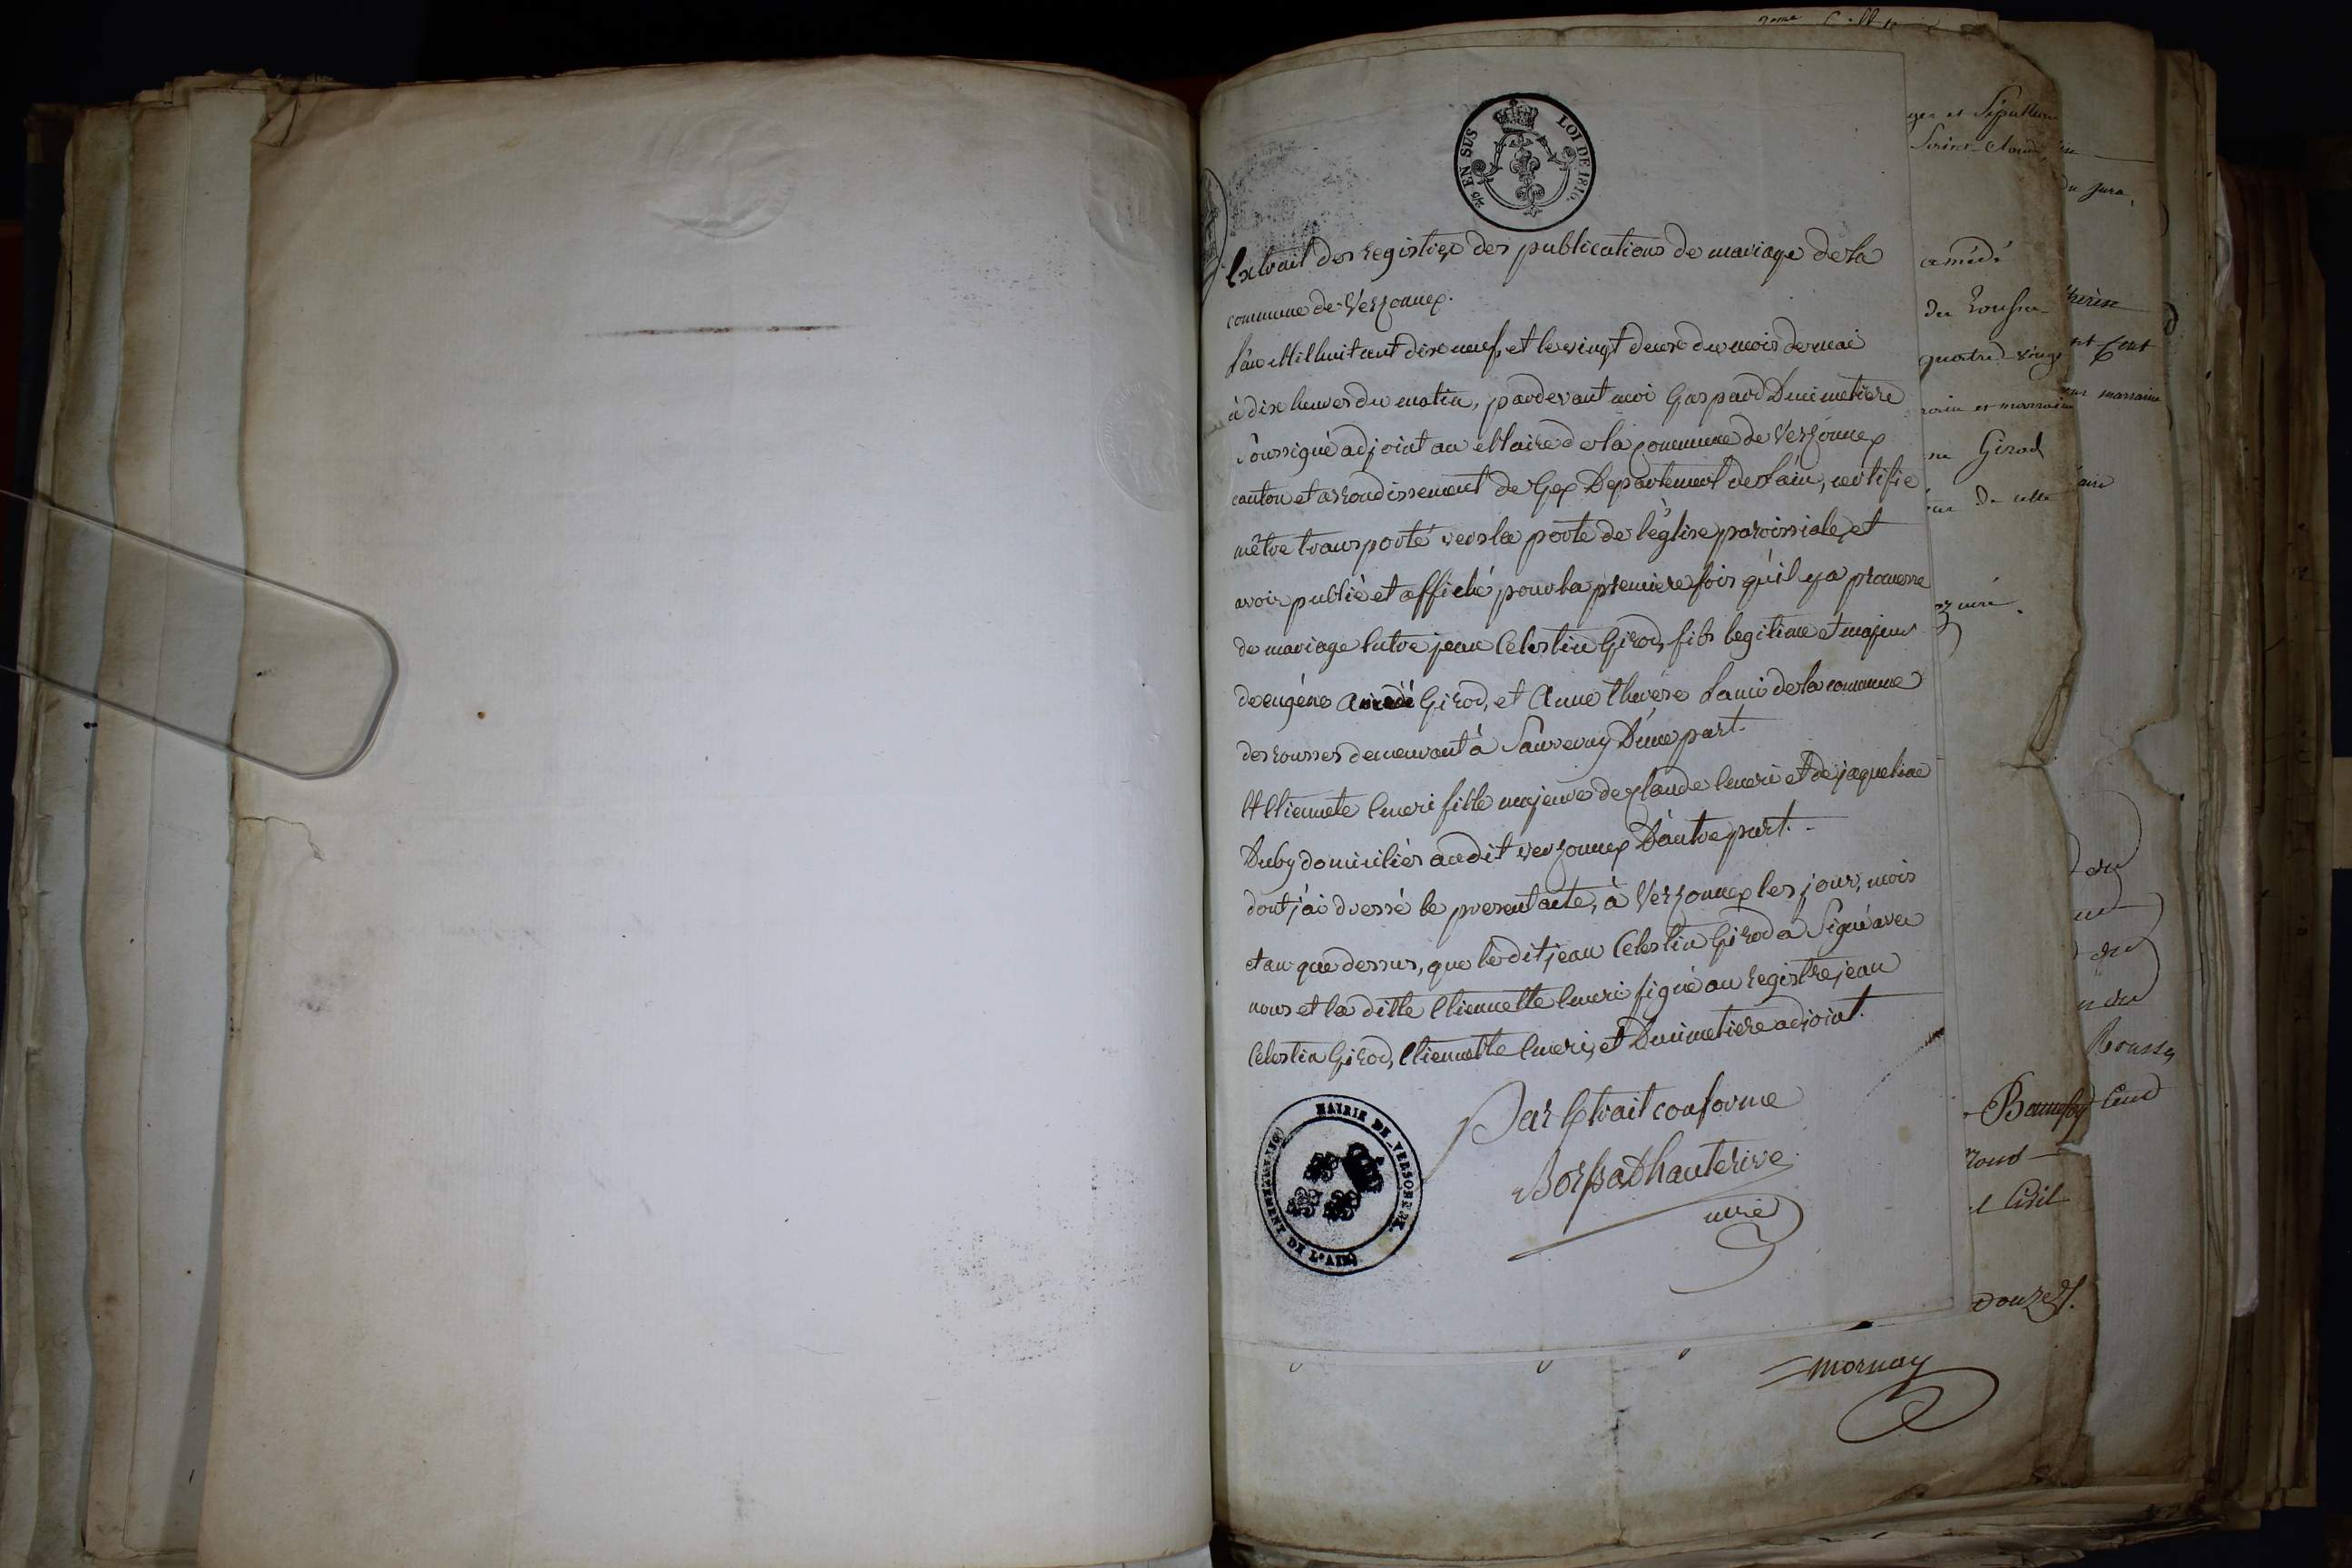 2/10 EN SUS LOI DE 1816.
Extrait des registre des publications de mariage de la
commune de Versonnex.
L'an Mil huit cent dix neuf, et le vingt deux du mois de mai
à dix heures du matin, pardevant moi Gaspard Dunimetiere
Soussigné adjoint au Maire de la commune de Versonnex
canton et arrondissement de Gex Departement de l'ain, certifie
mêtre transporté vers la porte de l'église paroissiale, et
avoir publié et affiché pour la premiere fois qu'il y a promesse
de mariage Entre jean Celestin Girod, fils legitime et majeur
de eugéne Amédé Girod, et Anne thérése Lami de la commune
des rousses demeurant à Sauverny D'une part.
Et Etiennete Emeri fille majeure de Claude Emeri et de jaqueline
Duby domiciliés audit versonnex D'autre part.
dont j'ai dressé le present acte, à Versonnex les jour, mois
et an que dessus, que ledit jean Celestin Girod a Signé avec
nous et la ditte Etiennette Emeri signé au registre jean
Celestin Girod, Etiennette Emeri, et Dunimetiere adjoint.
Par Extrait conforme
Borssat Dhauterive
MAIRIE DE VERSONNEX
DEPARTEMENT DE L'AIN
mornay
ges et Sépulture
Saint-Claude
du jura,
amédé
thérèse
quatre-vingt
marraine
Girod
de cette
Rousses
Bonnefoy
Civil